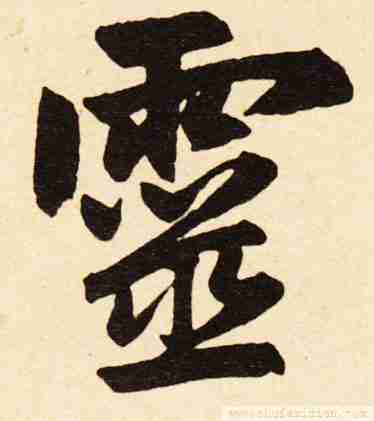 靈
www.shufazidian.com